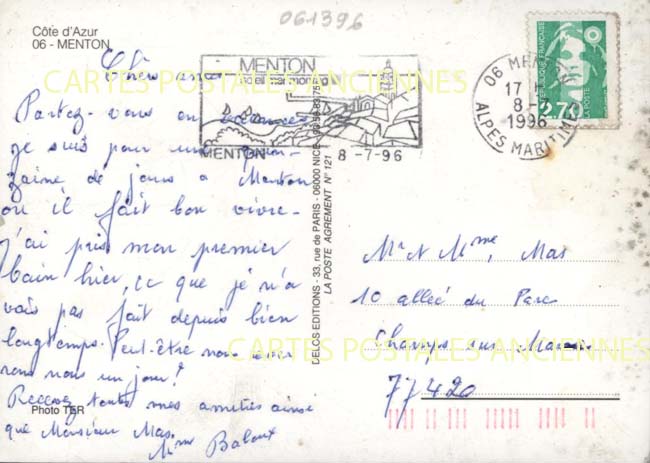 061396
Côte d'Azur
06 - MENTON
MENTON
MENTON
8 -7-96
06 MENTON
17 H
8-7
1996
ALPES MARITIMES
REPUBLIQUE FRANÇAISE
LA POSTE
2,70
CARTES POSTALES ANCIENNES
Chère
Partez-vous en vacances
je suis pour une quin-
zaine de jours a Menton
ou il fait bon vivre-
j'ai pris mon premier
bain hier, ce que je n'a
vais pas fait depuis bien
longtemps. Peut-être nous over
rons nous un jour?
Recevez toutes mes amitiés ainsi
que Monsieur Mas.
Mme
Photo TER
DELCS EDITIONS - 33, rue de PARIS - 06000 NICE -
LA POSTE AGREMENT N° 121
Mr et Mme, Mas
10 alleé du Parc
Champs sur Marne
77420
CARTES POSTALES ANCIENNES